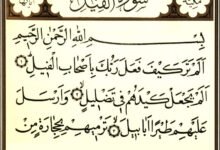 سُورَةُ الفِيلِ
بِسْمِ اللهِ الرَّحْمٰنِ الرَّحِيمِ
أَلَمْ تَرَ كَيْفَ فَعَلَ رَبُّكَ بِأَصْحَابِ الْفِيلِ
أَلَمْ يَجْعَلْ كَيْدَهُمْ فِي تَضْلِيلٍ وَأَرْسَلَ
عَلَيْهِمْ طَيْرًا أَبَابِيلَ تَرْمِيهِمْ بِحِجَارَةٍ مِنْ